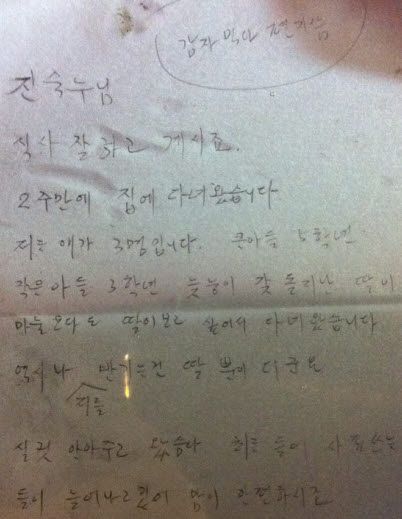 감자 먹다 편지씀
진숙누님
식사 잘 하고 계시죠.
2주만에 집에 다녀왔습니다
저는 애가 3명입니다. 큰아들 5학년
작은아들 3학년 늦둥이 갓 돌지난 딸이
마눌보다도 딸이 보고 싶어서 다녀왔습니다
역시나 반기는건 딸 뿐이더군요
저를
실컷 안아주고 왔습니다 최루 들이
들이 늘어나고 맘이 안편하시죠